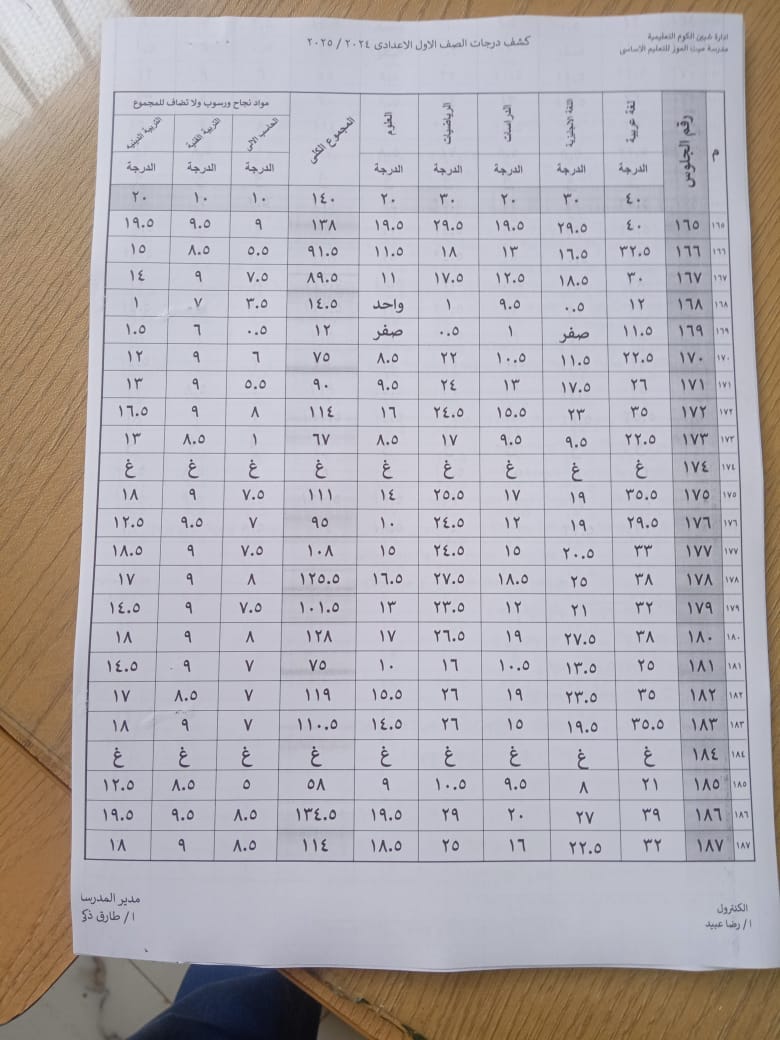 ادارة شبين الكوم التعليمية
مدرسة ميت الموز للتعليم الاساسى
كشف درجات الصف الاول الاعدادى ٢٠٢٤ / ٢٠٢٥
م رقم الجلوس لغة عربية اللغة الانجليزية الدراسات الرياضيات العلوم المجموع الكلى مواد نجاح ورسوب ولا تضاف للمجموع
الحاسب الآلى التربية الفنية التربية الدينية
الدرجة الدرجة الدرجة الدرجة الدرجة الدرجة الدرجة الدرجة
٤٠ ٣٠ ٢٠ ٣٠ ٢٠ ١٤٠ ١٠ ١٠ ٢٠
١٦٥ ١٦٥ ٤٠ ٢٩.٥ ١٩.٥ ٢٩.٥ ١٩.٥ ١٣٨ ٩ ٩.٥ ١٩.٥
١٦٦ ١٦٦ ٣٢.٥ ١٦.٥ ١٣ ١٨ ١١.٥ ٩١.٥ ٥.٥ ٨.٥ ١٥
١٦٧ ١٦٧ ٣٠ ١٨.٥ ١٢.٥ ١٧.٥ ١١ ٨٩.٥ ٧.٥ ٩ ١٤
١٦٨ ١٦٨ ١٢ ٠.٥ ٩.٥ ١ واحد ١٤.٥ ٣.٥ ٧ ١
١٦٩ ١٦٩ ١١.٥ صفر ١ ٠.٥ صفر ١٢ ٠.٥ ٦ ١.٥
١٧٠ ١٧٠ ٢٢.٥ ١١.٥ ١٠.٥ ٢٢ ٨.٥ ٧٥ ٦ ٩ ١٢
١٧١ ١٧١ ٢٦ ١٧.٥ ١٣ ٢٤ ٩.٥ ٩٠ ٥.٥ ٩ ١٣
١٧٢ ١٧٢ ٣٥ ٢٣ ١٥.٥ ٢٤.٥ ١٦ ١١٤ ٨ ٩ ١٦.٥
١٧٣ ١٧٣ ٢٢.٥ ٩.٥ ٩.٥ ١٧ ٨.٥ ٦٧ ١ ٨.٥ ١٣
١٧٤ ١٧٤ غ غ غ غ غ غ غ غ غ
١٧٥ ١٧٥ ٣٥.٥ ١٩ ١٧ ٢٥.٥ ١٤ ١١١ ٧.٥ ٩ ١٨
١٧٦ ١٧٦ ٢٩.٥ ١٩ ١٢ ٢٤.٥ ١٠ ٩٥ ٧ ٩.٥ ١٢.٥
١٧٧ ١٧٧ ٣٣ ٢٠.٥ ١٥ ٢٤.٥ ١٥ ١٠٨ ٧.٥ ٩ ١٨.٥
١٧٨ ١٧٨ ٣٨ ٢٥ ١٨.٥ ٢٧.٥ ١٦.٥ ١٢٥.٥ ٨ ٩ ١٧
١٧٩ ١٧٩ ٣٢ ٢١ ١٢ ٢٣.٥ ١٣ ١٠١.٥ ٧.٥ ٩ ١٤.٥
١٨٠ ١٨٠ ٣٨ ٢٧.٥ ١٩ ٢٦.٥ ١٧ ١٢٨ ٨ ٩ ١٨
١٨١ ١٨١ ٢٥ ١٣.٥ ١٠.٥ ١٦ ١٠ ٧٥ ٧ ٩ ١٤.٥
١٨٢ ١٨٢ ٣٥ ٢٣.٥ ١٩ ٢٦ ١٥.٥ ١١٩ ٧ ٨.٥ ١٧
١٨٣ ١٨٣ ٣٥.٥ ١٩.٥ ١٥ ٢٦ ١٤.٥ ١١٠.٥ ٧ ٩ ١٨
١٨٤ ١٨٤ غ غ غ غ غ غ غ غ غ
١٨٥ ١٨٥ ٢١ ٨ ٩.٥ ١٠.٥ ٩ ٥٨ ٥ ٨.٥ ١٢.٥
١٨٦ ١٨٦ ٣٩ ٢٧ ٢٠ ٢٩ ١٩.٥ ١٣٤.٥ ٨.٥ ٩.٥ ١٩.٥
١٨٧ ١٨٧ ٣٢ ٢٢.٥ ١٦ ٢٥ ١٨.٥ ١١٤ ٨.٥ ٩ ١٨
الكنترول
ا/ رضا عبيد
مدير المدرسا
ا/ طارق ذكى